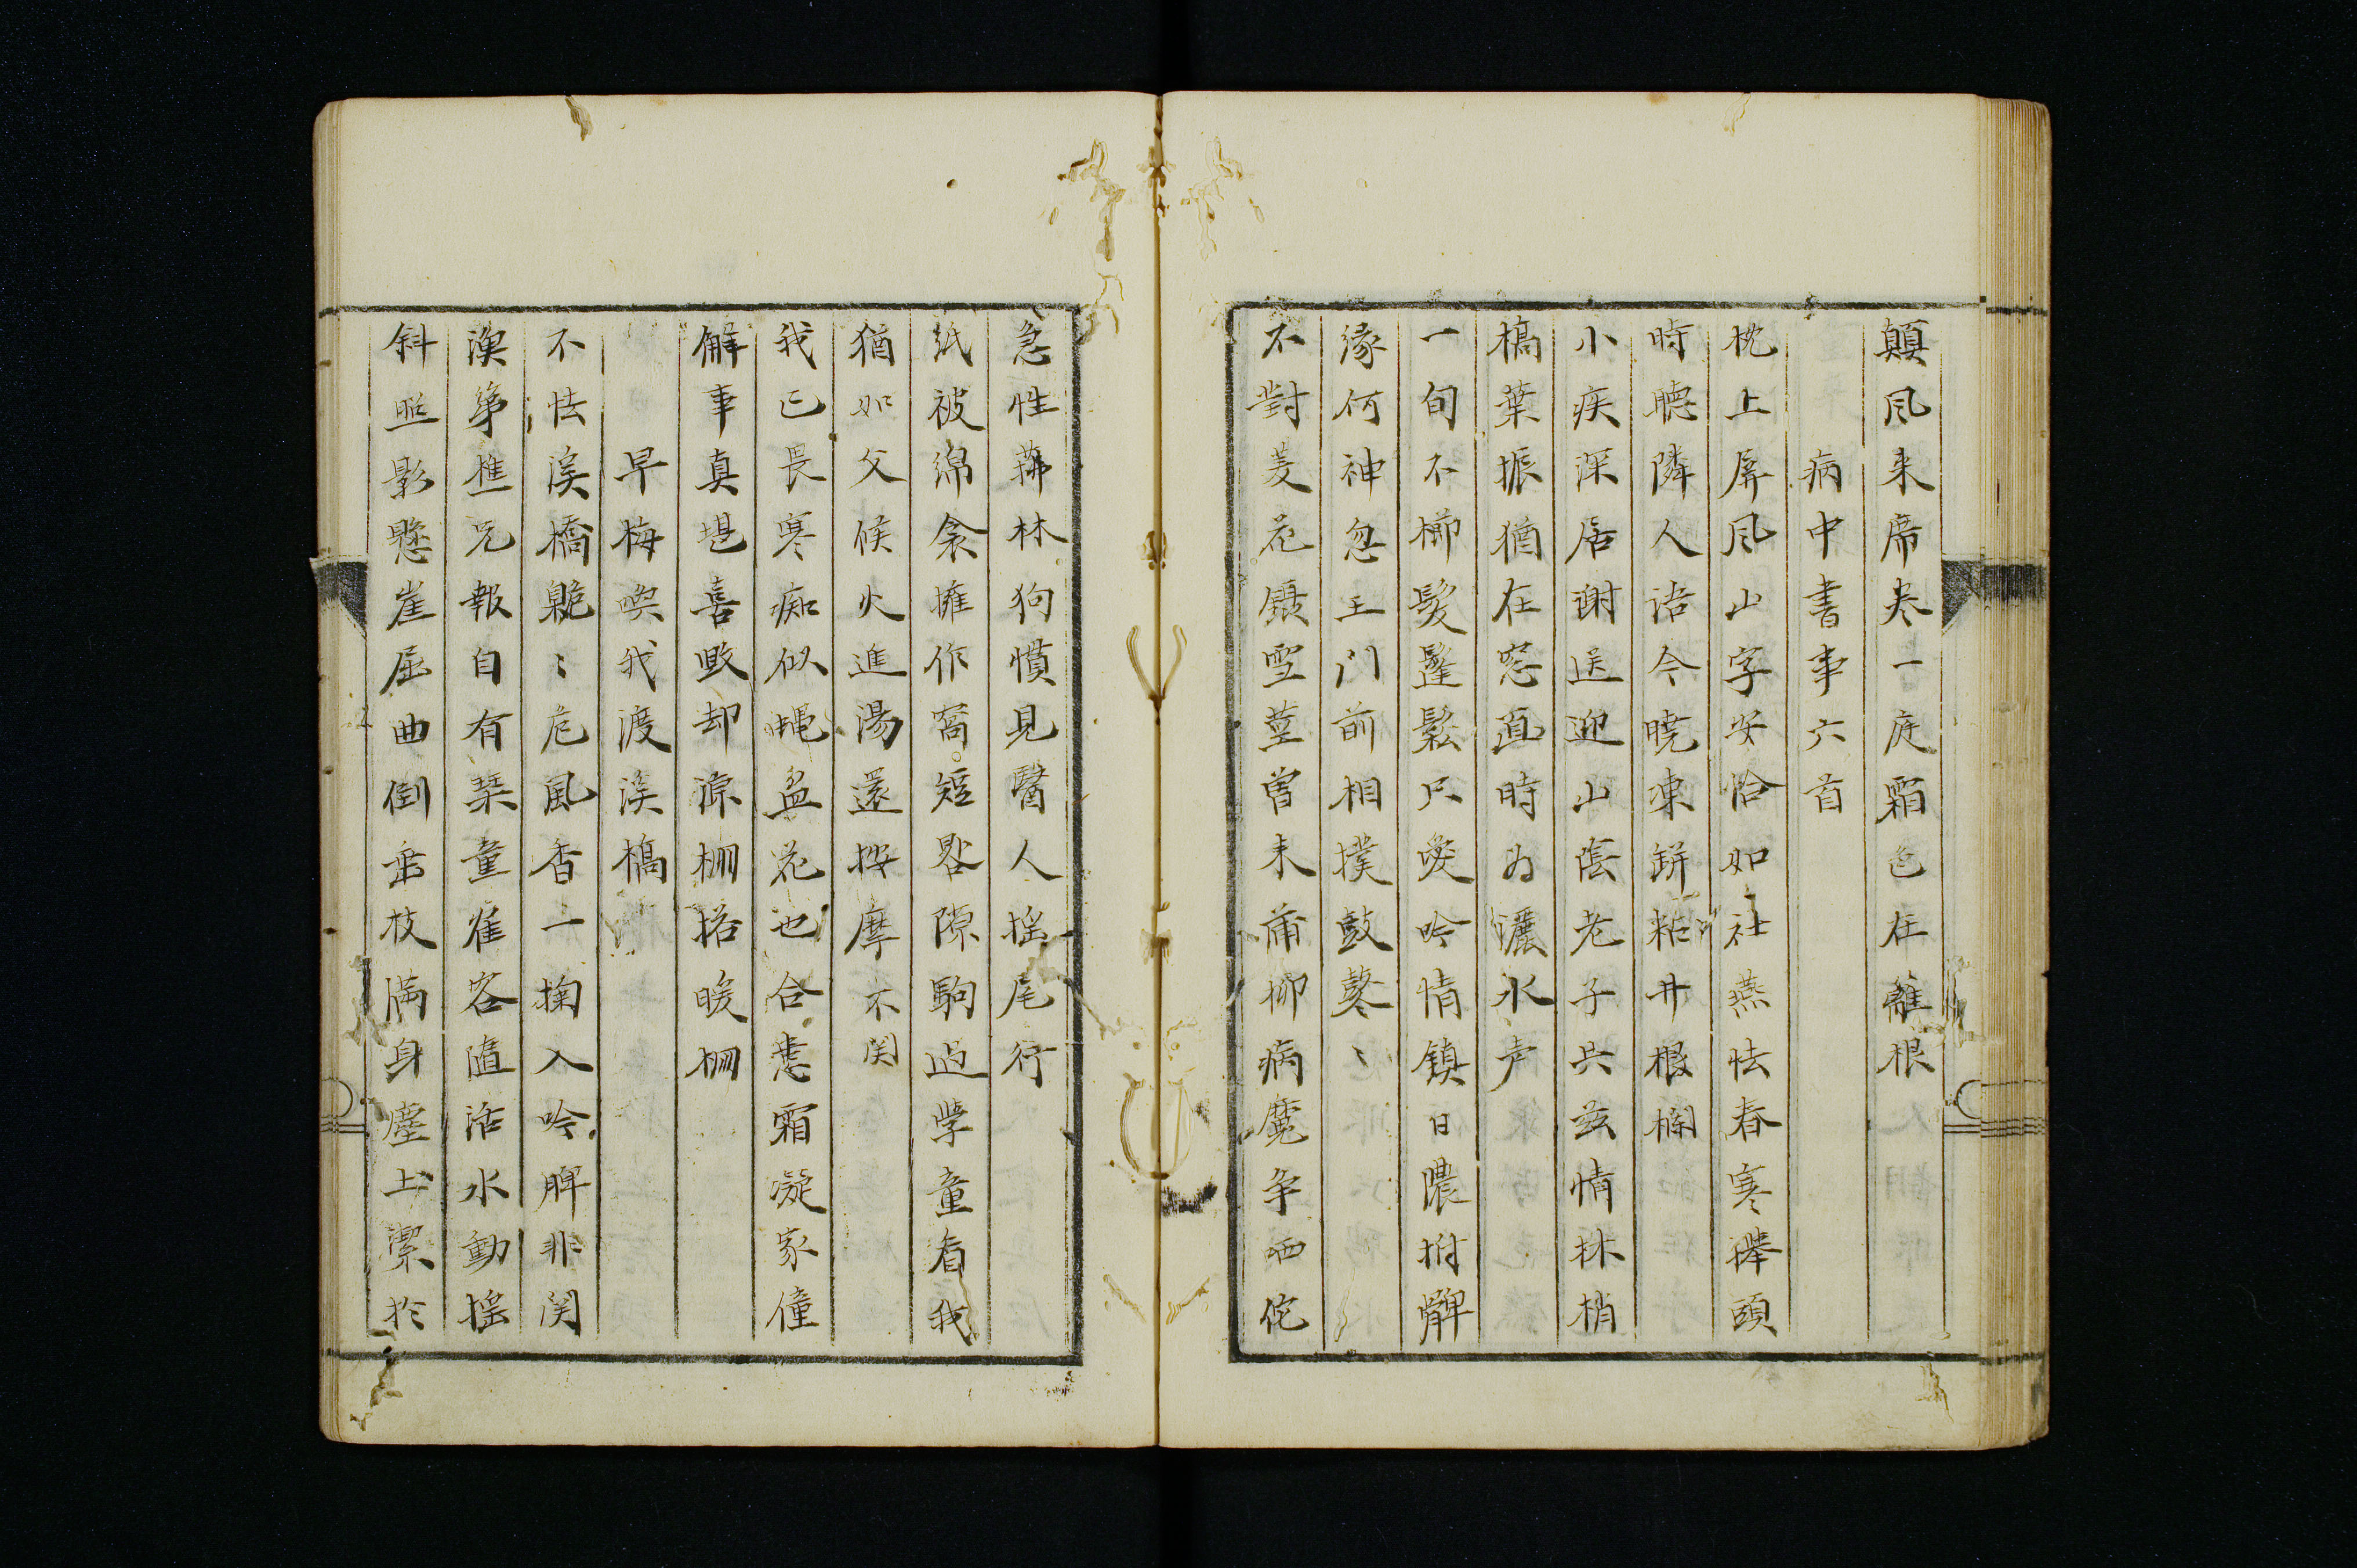 顛風来席卷一庭霜色在籬根
病中書事六首
枕上屏风山字安恰如社燕怯春寒擁頭
時聴隣人话今暁凍缾粘井根欄
小疾深居谢送迎山陰老子共兹情林梢
槁葉振猶在窓直時為灑水声
一句不櫛髮鬔鬆只愛吟情鎮日濃拊髀
縁何神忽王门前相撲鼓鼕〻
不對菱花鑷雪莖曽未蒲柳病魔争西侘
急性莽林狗憤見醫人摇尾行
紙被綿衾擁作窩短晷隙駒過学童看我
猶如父候火進湯還按摩不関
我已長寒痴似蝿盆花也合患霜凝家僮
解事真堪喜毀却凉棚搭暖棚
早梅喚我渡渓橋
不怯渓橋臲〻危風香一掬入吟脾非関
漁弟樵兄報自有琴童隺客随活水動摇
斜照影懸崖屈曲倒垂枝满身塵土潔於